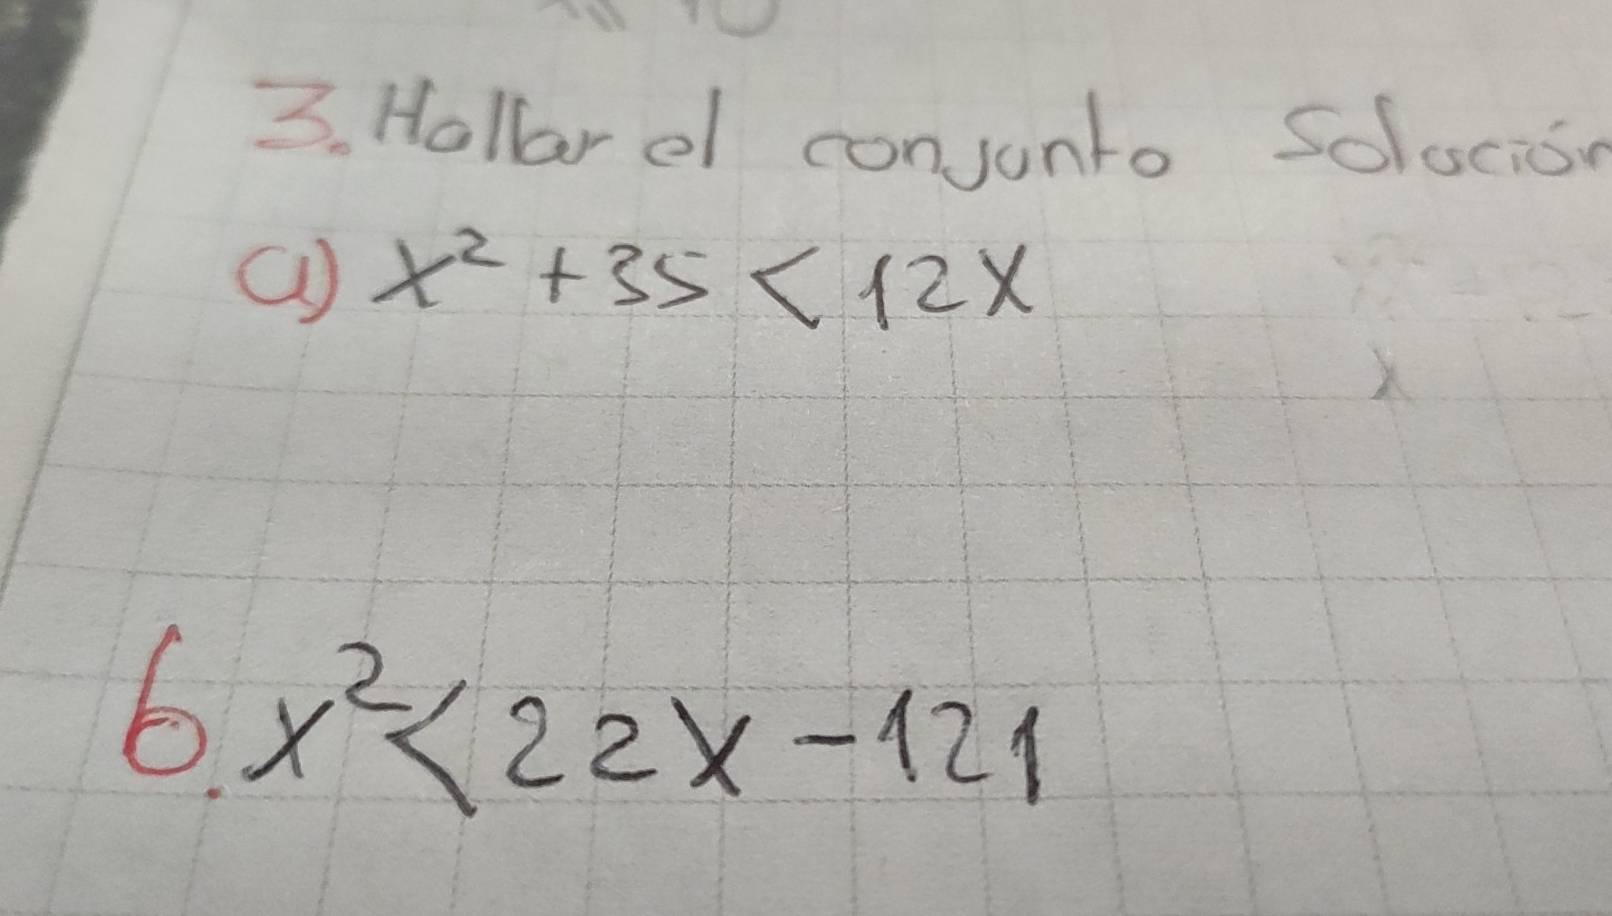 3. Hallar el conjunto Solución
a) x² + 35 < 12x
x
6. x² < 22x - 121